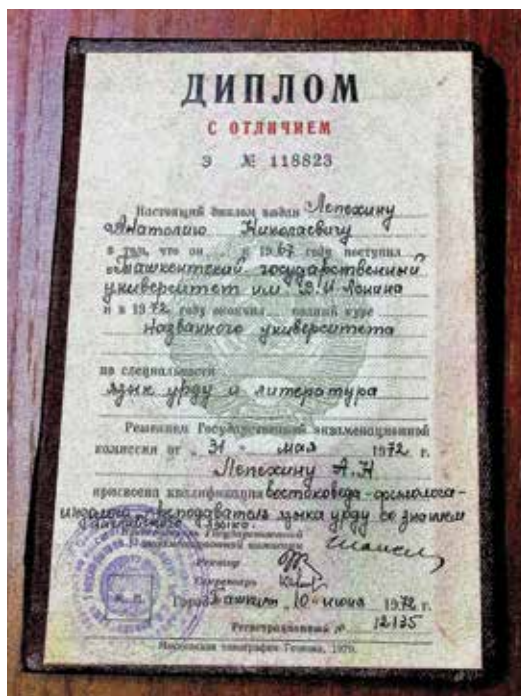 ДИПЛОМ
С ОТЛИЧИЕМ
Э № 118823
Настоящий диплом выдан Лепехину
Анатолию Николаевичу
в том, что он в 1967 году поступил
Ташкентский государственный
университет им. В.И. Ленина
и в 1972 году окончил полный курс
названного университета
по специальности
язык урду и литература
Решением Государственной экзаменационной
комиссии от „31" мая 1972 г.
Лепехину А.Н
присвоена квалификация востоковеда-филолога-
индолога преподаватель языка урду со знанием
английского языка.
Председатель Государственной
экзаменационной комиссии
Ректор
Секретарь
М. П.
Город Ташкент „10" июня 1972 г.
Регистрационный № 12135
Московская типография Гознака, 1970.